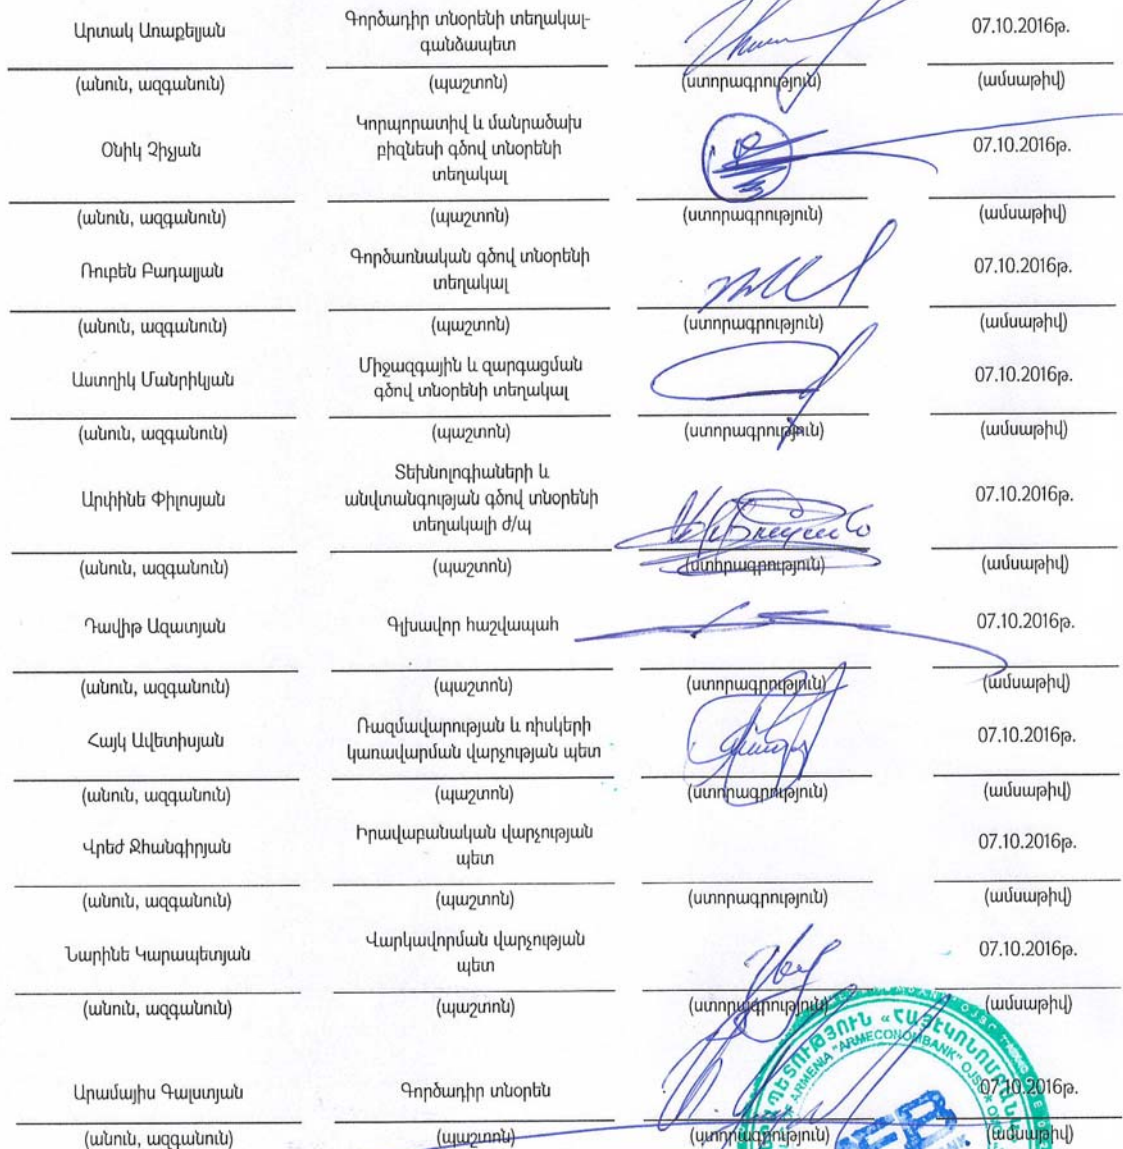 Արտակ Առաքելյան
Գործադիր տնօրենի տեղակալ-
գանձապետ
07.10.2016թ.
(անուն, ազգանուն) (պաշտոն) (ստորագրություն) (ամսաթիվ)
Օնիկ Չիչյան
Կորպորատիվ և մանրածախ
բիզնեսի գծով տնօրենի
տեղակալ
07.10.2016թ.
(անուն, ազգանուն) (պաշտոն) (ստորագրություն) (ամսաթիվ)
Ռուբեն Բադալյան
Գործառնական գծով տնօրենի
տեղակալ
07.10.2016թ.
(անուն, ազգանուն) (պաշտոն) (ստորագրություն) (ամսաթիվ)
Աստղիկ Մանրիկյան
Միջազգային և զարգացման
գծով տնօրենի տեղակալ
07.10.2016թ.
(անուն, ազգանուն) (պաշտոն) (ստորագրություն) (ամսաթիվ)
Արփինե Փիլոսյան
Տեխնոլոգիաների և
անվտանգության գծով տնօրենի
տեղակալի ժ/պ
07.10.2016թ.
(անուն, ազգանուն) (պաշտոն) (ստորագրություն) (ամսաթիվ)
Դավիթ Ազատյան
Գլխավոր հաշվապահ
07.10.2016թ.
(անուն, ազգանուն) (պաշտոն) (ստորագրություն) (ամսաթիվ)
Հայկ Ավետիսյան
Ռազմավարության և ռիսկերի
կառավարման վարչության պետ
07.10.2016թ.
(անուն, ազգանուն) (պաշտոն) (ստորագրություն) (ամսաթիվ)
Վրեժ Ջհանգիրյան
Իրավաբանական վարչության
պետ
07.10.2016թ.
(անուն, ազգանուն) (պաշտոն) (ստորագրություն) (ամսաթիվ)
Նարինե Կարապետյան
Վարկավորման վարչության
պետ
07.10.2016թ.
(անուն, ազգանուն) (պաշտոն) (ստորագրություն) (ամսաթիվ)
Արամայիս Գալստյան
Գործադիր տնօրեն
07.10.2016թ.
(անուն, ազգանուն) (պաշտոն) (ստորագրություն) (ամսաթիվ)
OF ARMENIA "ARMECONOMBANK" OJSC